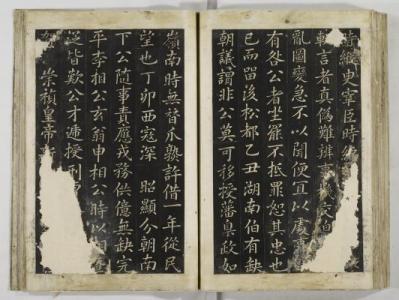 時縱史宰臣時
轍言者真僞難辨
亂國變急不以聞便宜以處
有咎公者坐罷不抵罪恕其忠也
已而留後松都乙丑湖南伯有缺
朝議謂非公莫可移授藩臬政如
嶺南時無替爪孰許借一年從民
望也丁卯西寇深 昭顯分朝南
下公隨事責應戎務供億無缺完
平李相公玄翁申相公時以
莫皆歎公才遞授刑
崇禎皇帝